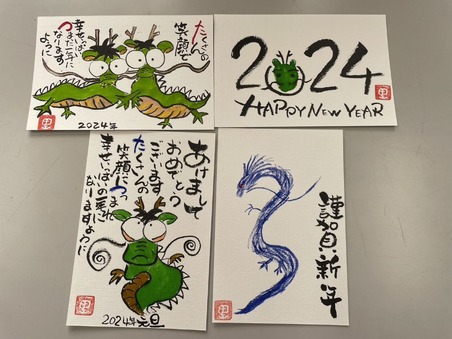 たくさんの
笑顔で
幸せいっぱい
つまった一年に
なります
ように
2024年
2024
HAPPY NEW YEAR
あけまして
おめでとう
ございます
たくさんの
笑顔につつまれ
幸せいっぱいの一年に
なりますように
2024年 元旦
謹賀新年